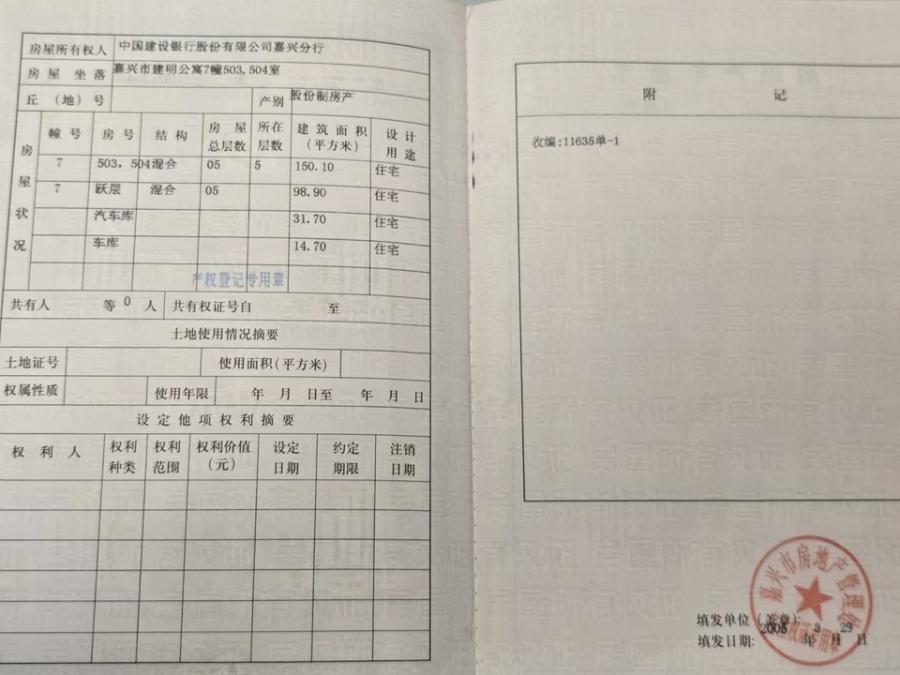 房屋所有权人 中国建设银行股份有限公司嘉兴分行
房屋坐落 嘉兴市建明公寓7幢503,504室
丘（地）号 产别 股份制房产
房屋状况
幢号 房号 结构 房屋总层数 所在层数 建筑面积（平方米） 设计用途
7 503，504 混合 05 5 150.10 住宅
7 跃层 混合 05 98.90 住宅
汽车库 31.70 住宅
车库 14.70 住宅
产权登记专用章
共有人 等0人 共有权证号自 至
土地使用情况摘要
土地证号 使用面积(平方米)
权属性质 使用年限 年 月 日至 年 月 日
设定他项权利摘要
权利人 权利种类 权利范围 权利价值（元） 设定日期 约定期限 注销日期
附记
收编:11635单-1
嘉兴市房地产管理处
填发单位（盖章）:
填发日期: 2005年3月29日